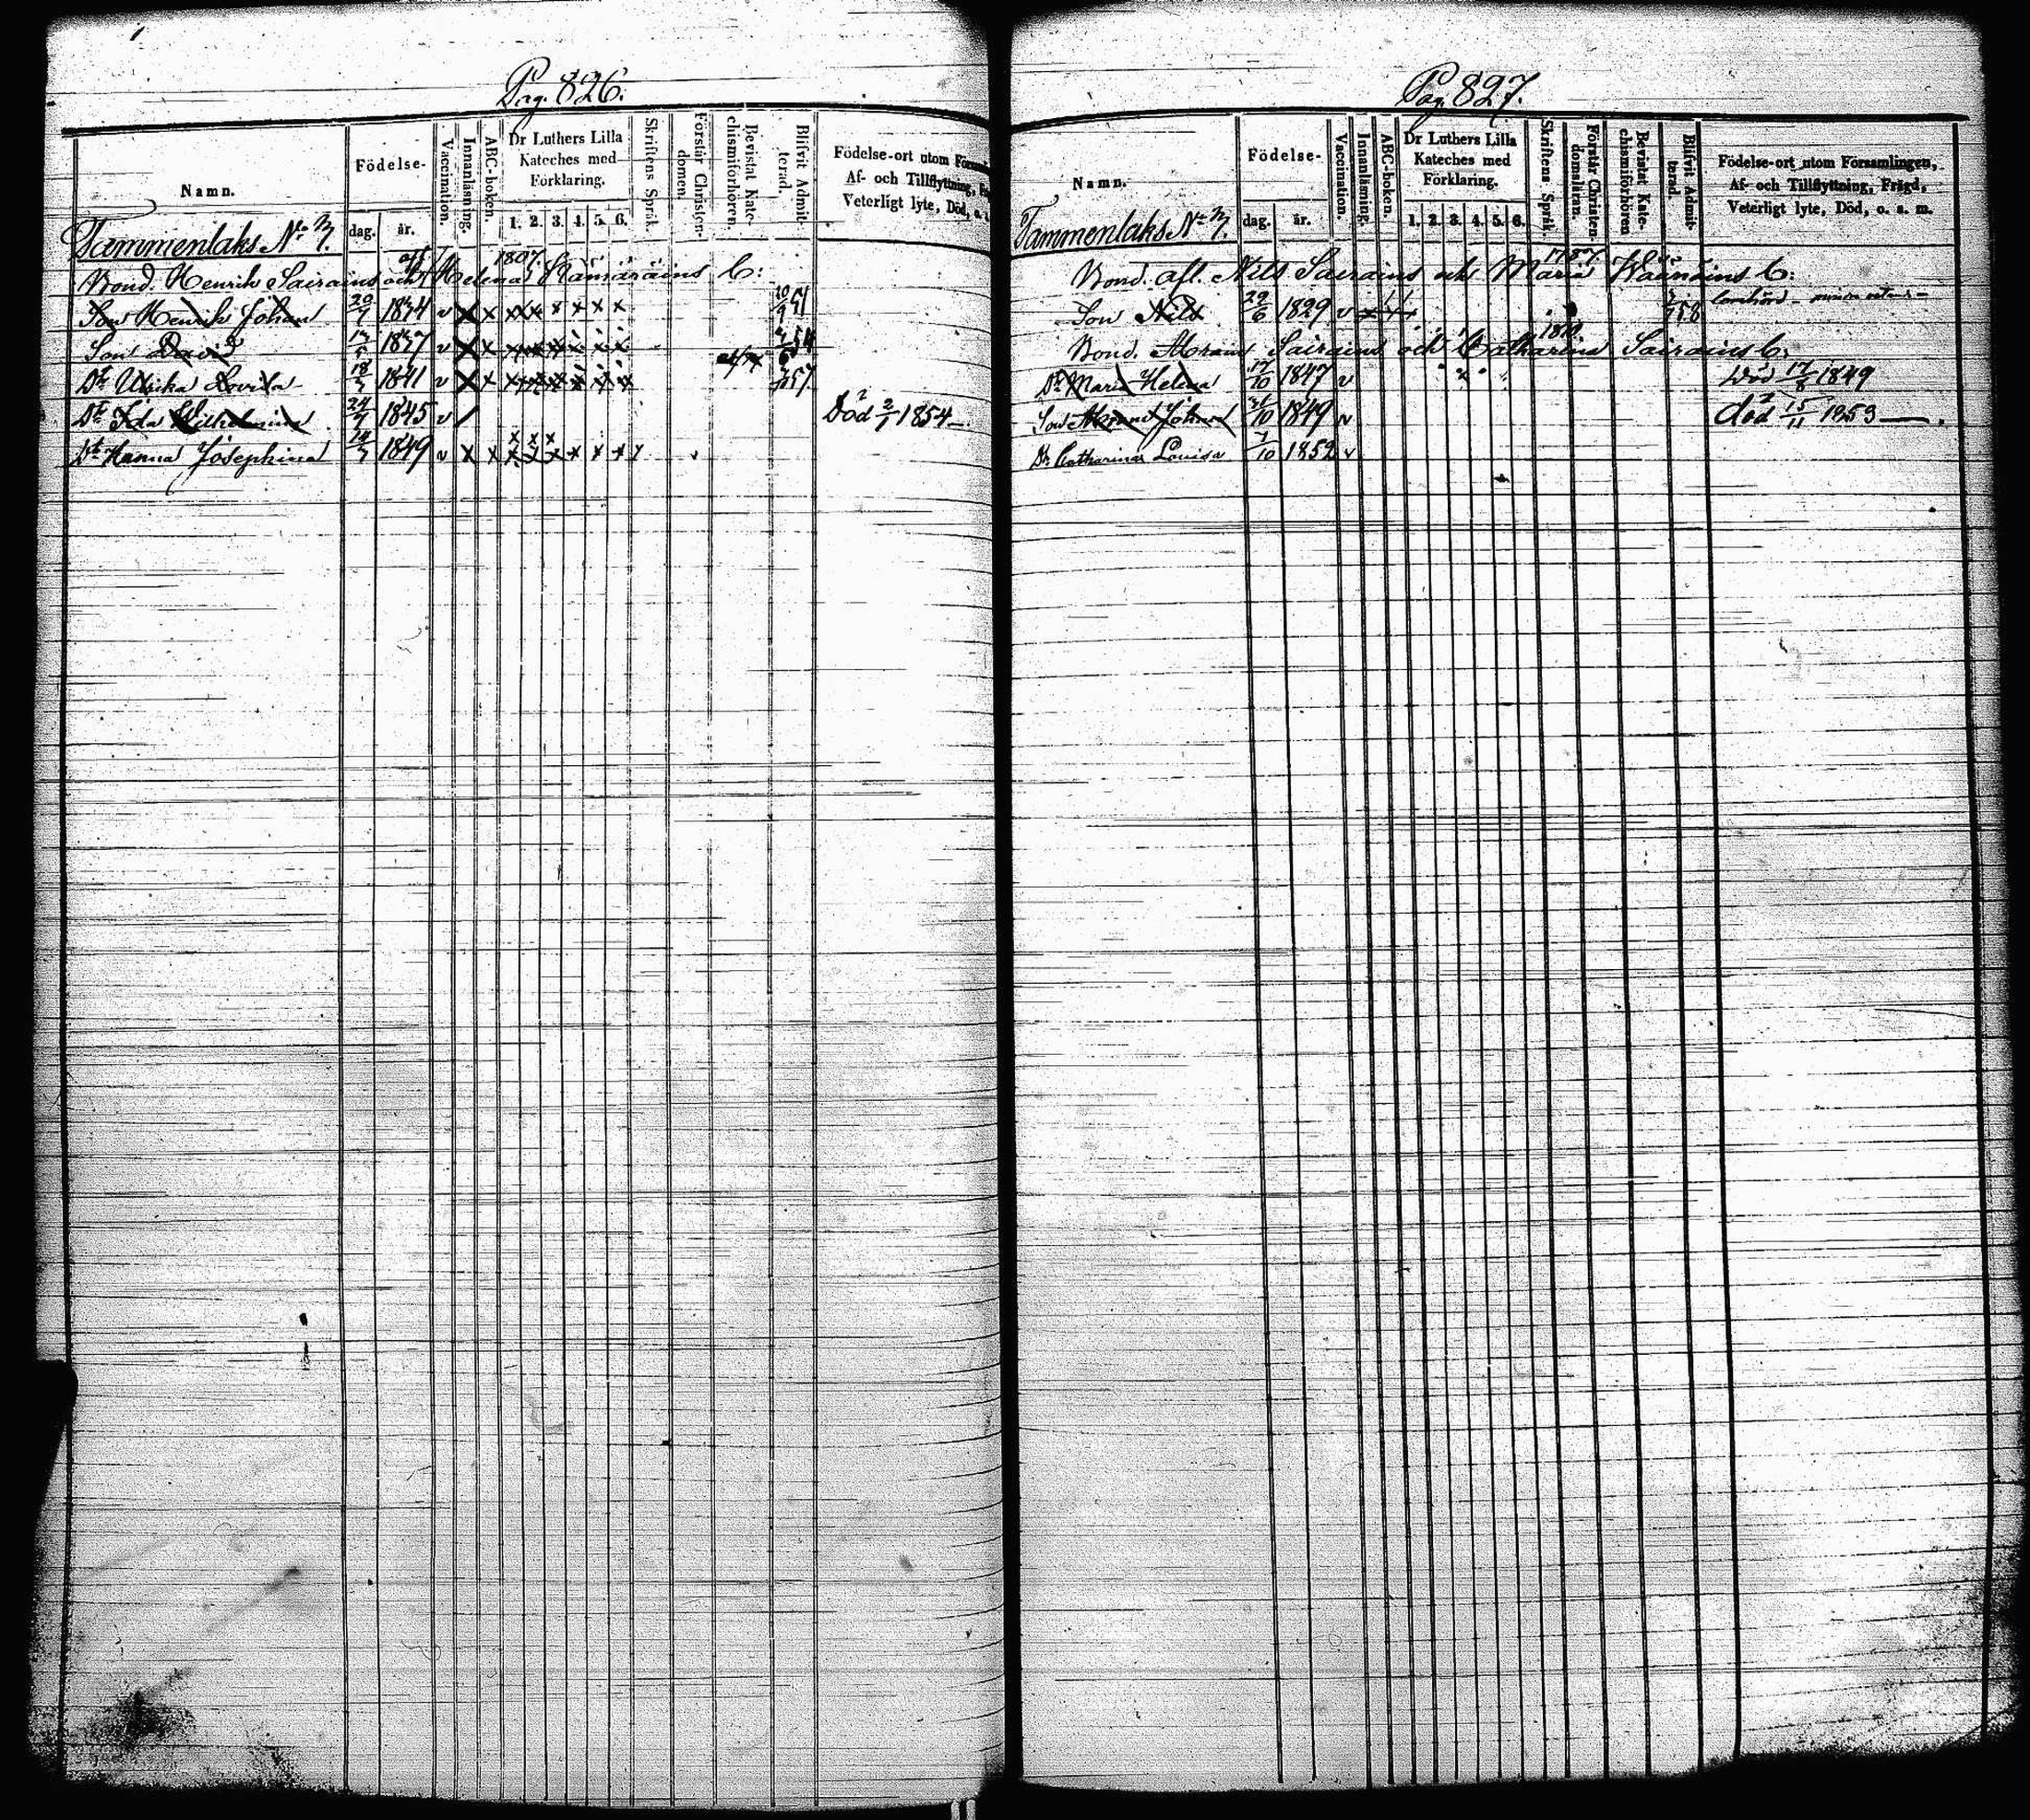 Pag. 826.
Namn.
Födelse-
dag.
år.
Vaccination.
Innanläsning.
ABC-boken.
Dr Luthers Lilla
Kateches med
Förklaring.
1. 2. 3. 4. 5. 6.
Skriftens Språk.
Förstår Christen-
domen.
Bevistat Kate-
chismiförhören.
Blifvit Admit-
terad.
Födelse-ort utom
Af- och Tillflyttning,
Veterligt lyte, Död, o. a.
Tammenlaks No 7.
1807.
Bond. Henrik Sairains och Helena Hämäräins C:
Son Henrik Johan 1834 v 51
Son David 1837 v 54
Dr Ulrika Lovisa 18 1841 v 57
Dr Ida Wilhelmina 24/7 1845 v Död 2/1 1854
Dr Hanna Josephina 1849 v
Pag. 827.
Namn.
Födelse-
dag.
år.
Vaccination.
Innanläsning.
ABC-boken.
Dr Luthers Lilla
Kateches med
Förklaring.
1. 2. 3. 4. 5. 6.
Skriftens Språk.
Förstår Christen-
domsläran.
Bevistat Kate-
chismiförhören
Blifvit Admit-
terad.
Födelse-ort utom Församlingen,
Af- och Tillflyttning, Frägd,
Veterligt lyte, Död, o. s. m.
Tammenlaks No 7.
1787.
Bond. afl. Nils Sairains och Maria C:
Son Nils 29/6 1829 v 58
Bond. Abram Sairains och Catharina Sairains C.
Dr Maria Helena 17/10 1847 v Död 17/8 1849
Son Abram Johan 31/10 1849 v död 15/11 1853
Dr Catharina Lovisa 7/10 1852 v